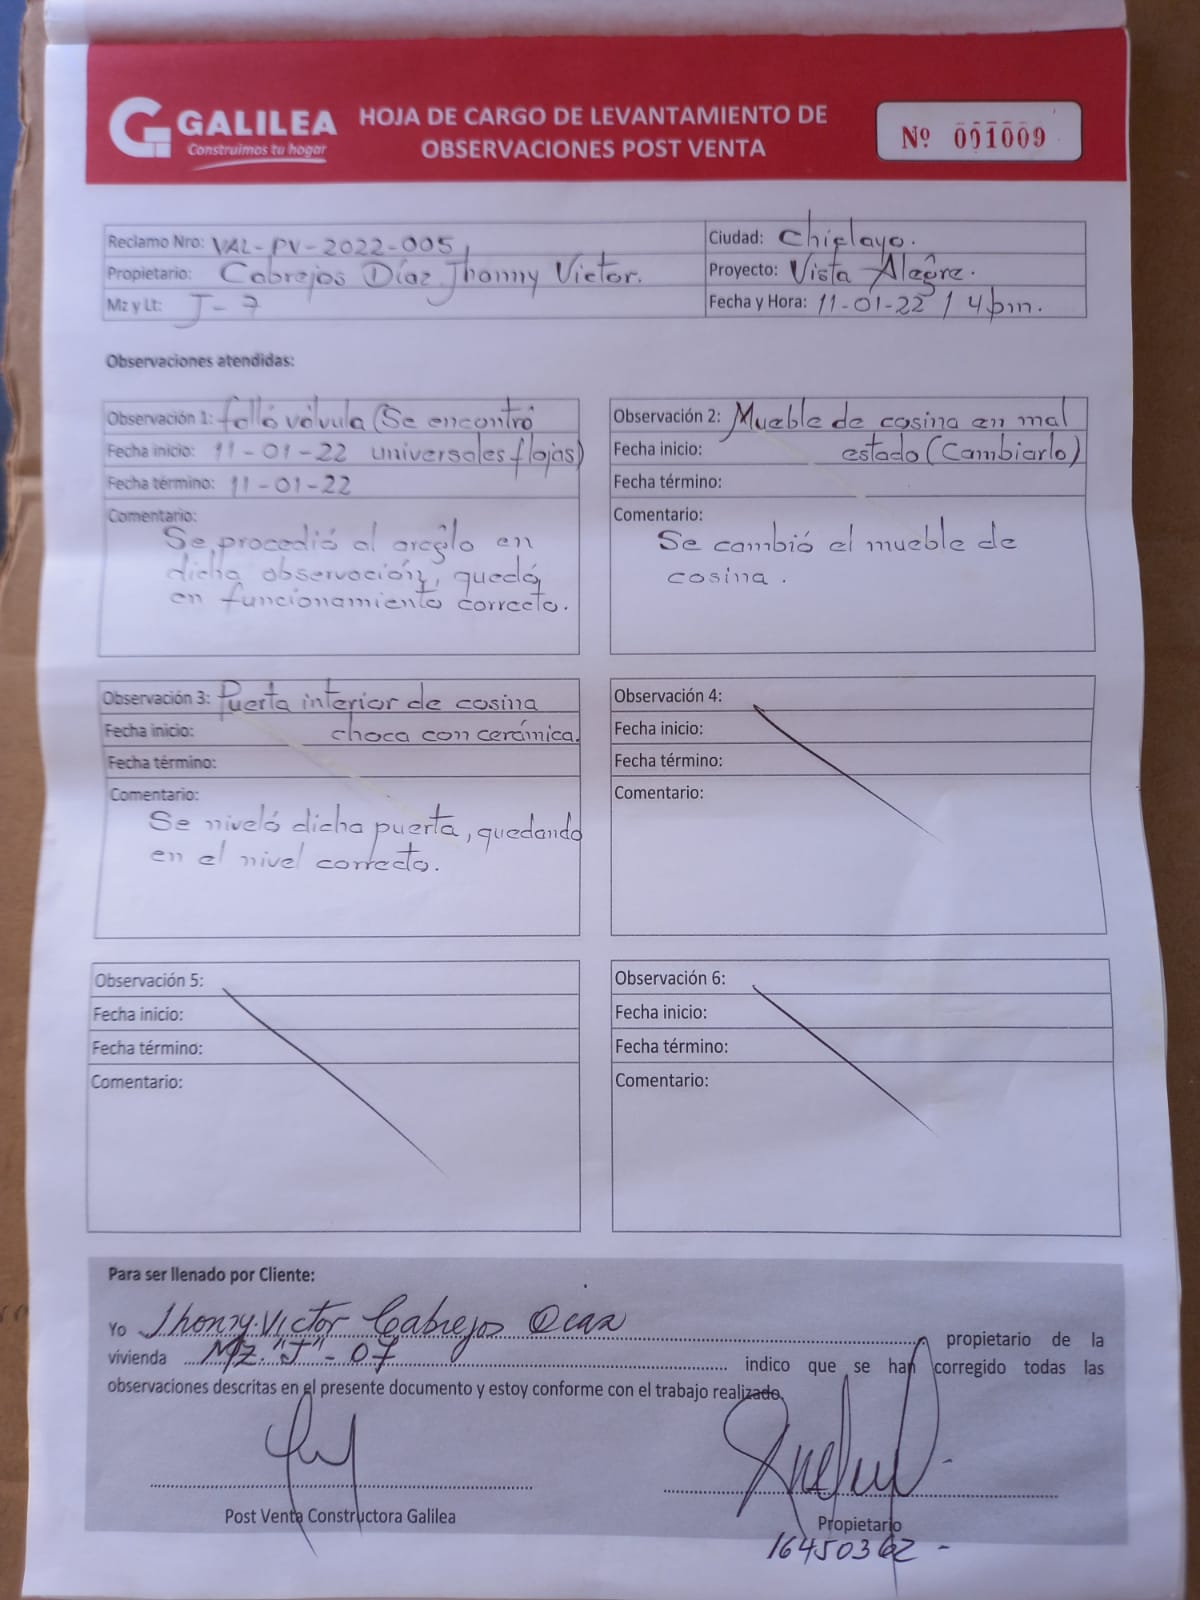 GALILEA
Construimos tu hogar
HOJA DE CARGO DE LEVANTAMIENTO DE
OBSERVACIONES POST VENTA
Nº 001009
Reclamo Nro: VAL-PV-2022-005
Ciudad: Chiclayo.
Propietario: Cabrejos Díaz Jhonny Victor.
Proyecto: Vista Alegre.
Mz y Lt: J-7
Fecha y Hora: 11-01-22 / 4pm.
Observaciones atendidas:
Observación 1: falló válvula (Se encontró
Fecha inicio: 11-01-22 universales flojas)
Fecha término: 11-01-22
Comentario:
Se procedió al areglo en
dicha observación, quedó
en funcionamiento correcto.
Observación 2: Mueble de cosina en mal
Fecha inicio: estado (Cambiarlo)
Fecha término:
Comentario:
Se cambió el mueble de
cosina.
Observación 3: Puerta interior de cosina
Fecha inicio: choca con cerámica.
Fecha término:
Comentario:
Se niveló dicha puerta, quedando
en el nivel correcto.
Observación 4:
Fecha inicio:
Fecha término:
Comentario:
Observación 5:
Fecha inicio:
Fecha término:
Comentario:
Observación 6:
Fecha inicio:
Fecha término:
Comentario:
Para ser llenado por Cliente:
Yo Jhonny Victor Cabrejos Diaz propietario de la
vivienda Mz. "J" - 07 indico que se han corregido todas las
observaciones descritas en el presente documento y estoy conforme con el trabajo realizado.
Post Venta Constructora Galilea
Propietario
16450362 -